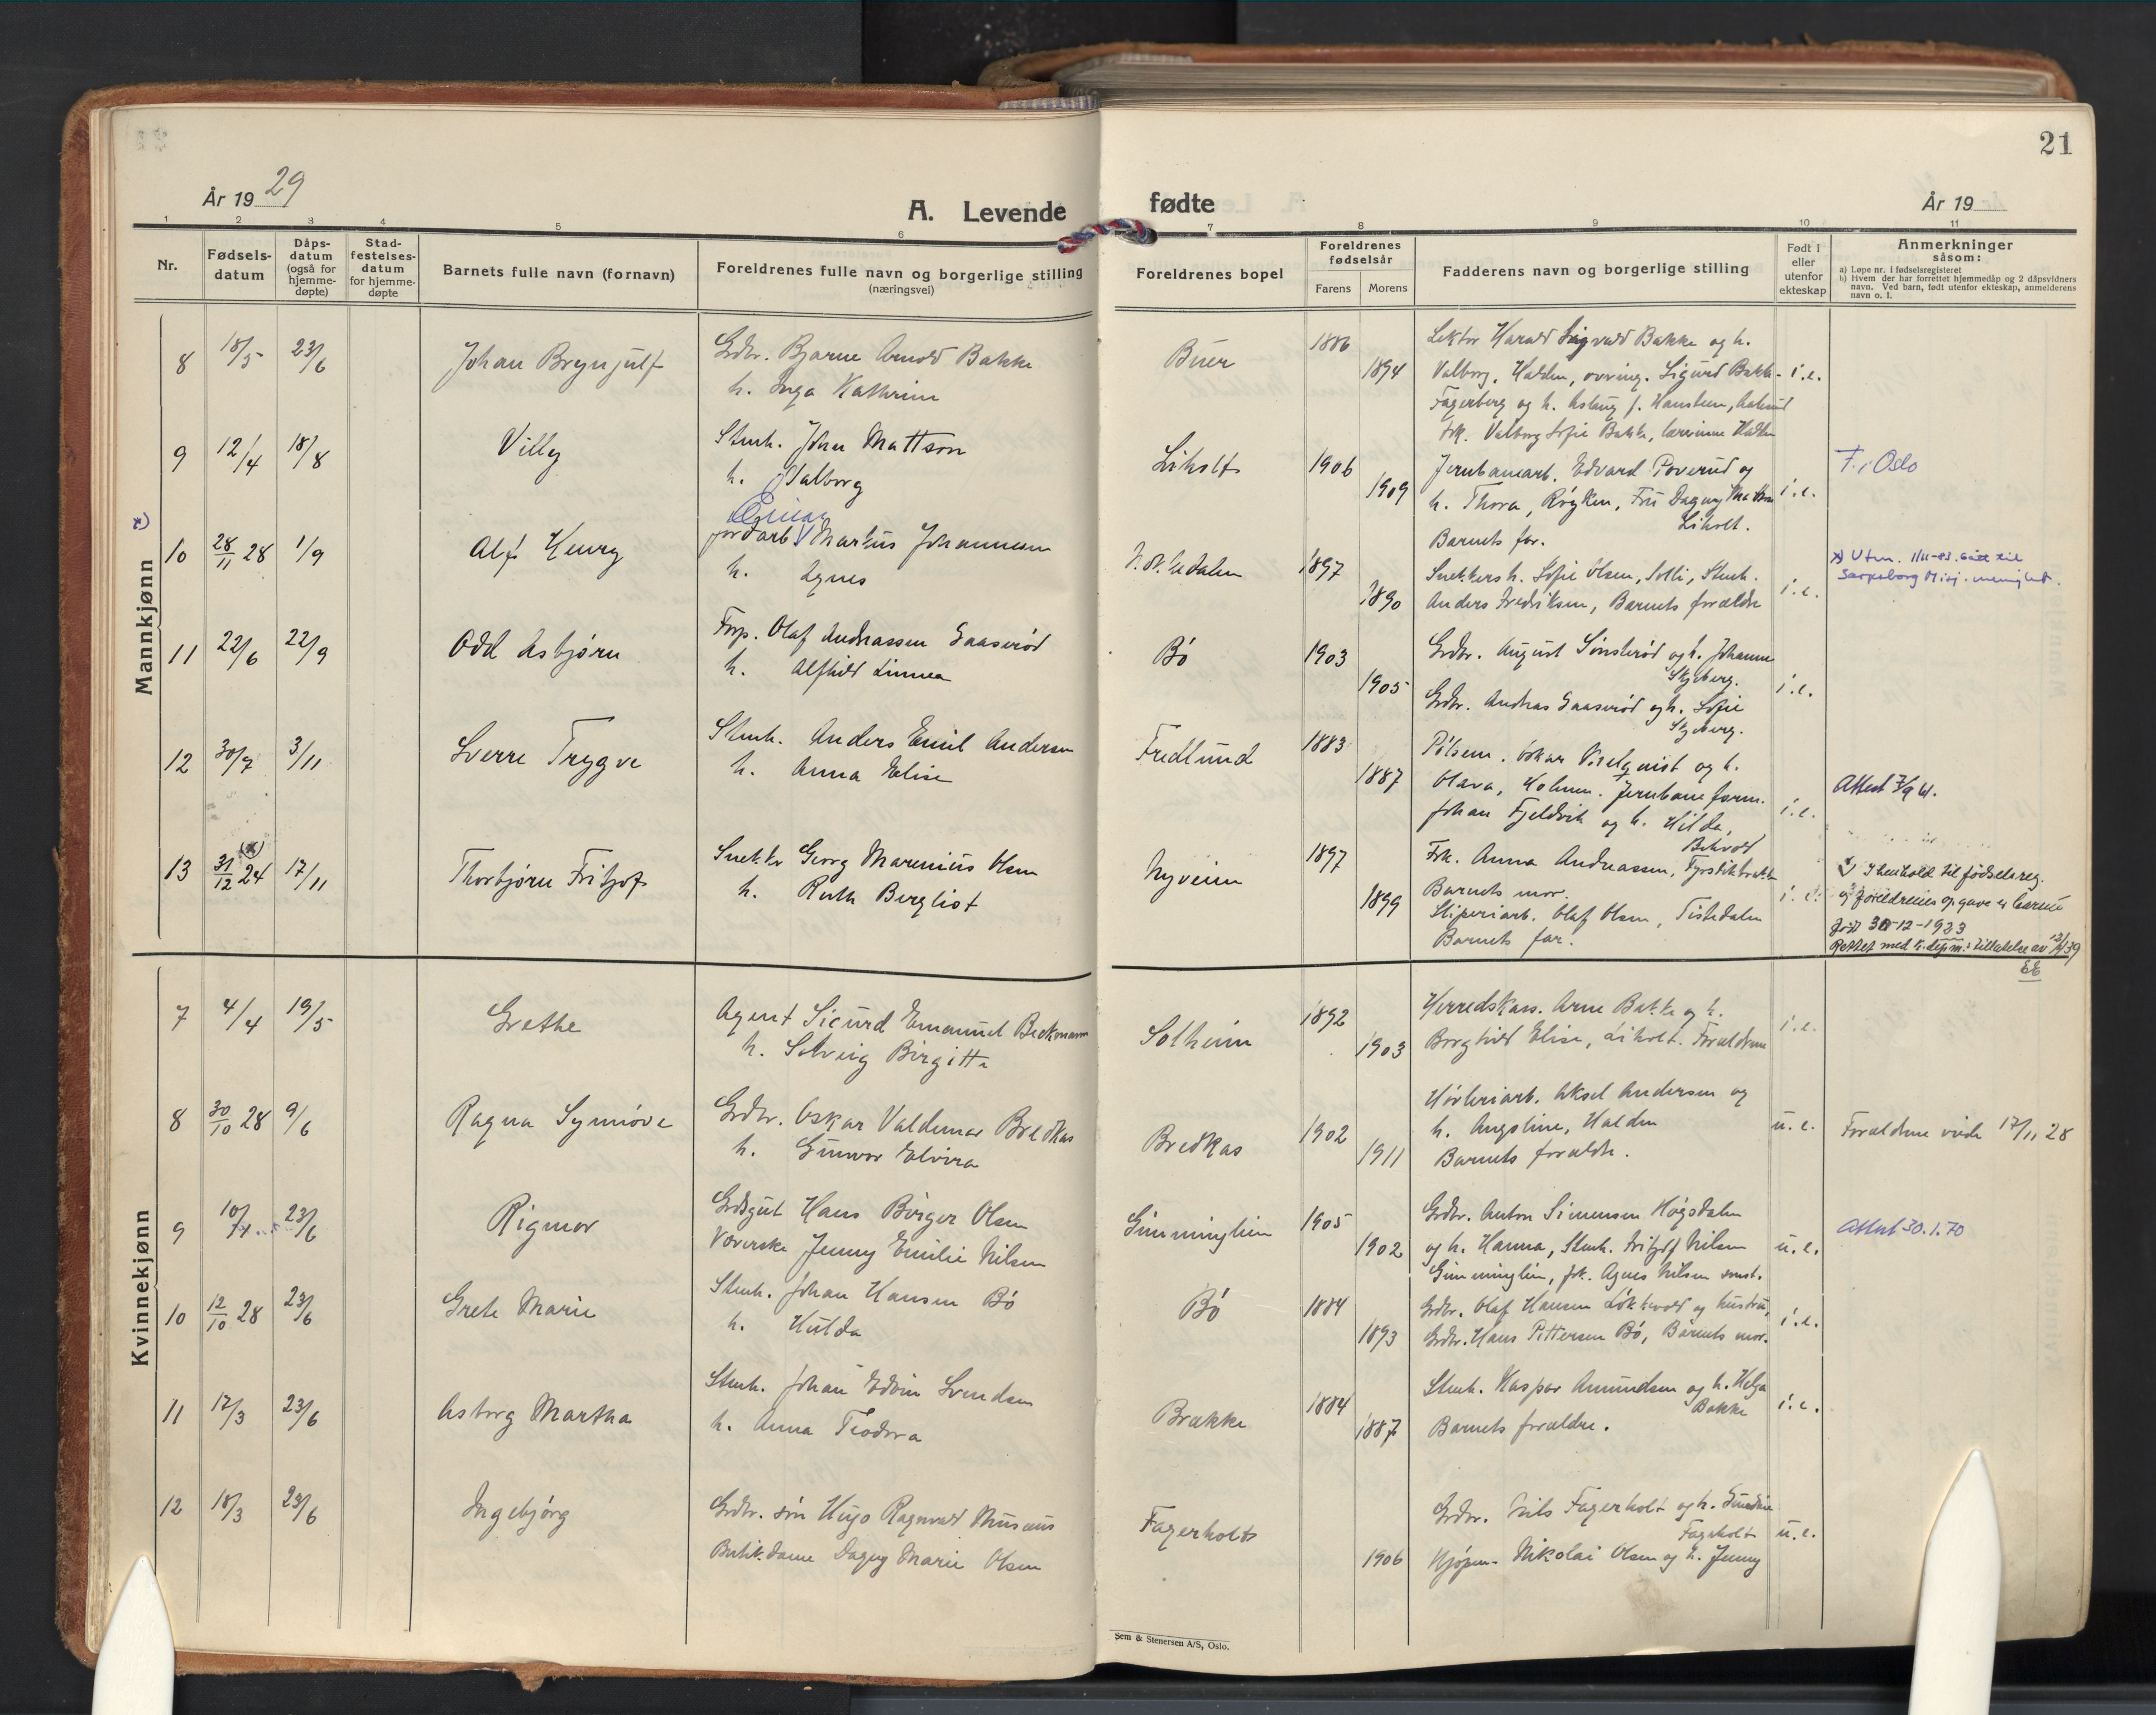 21
År 1929
A. Levende fødte
År 19
1 2 3 4 5 6 7 8 9 10 11
Nr.
Fødsels-
datum
Dåps-
datum
(også for
hjemme-
døpte)
Stad-
festelses-
datum
for hjemme-
døpte
Barnets fulle navn (fornavn)
Foreldrenes fulle navn og borgerlige stilling
(næringsvei)
Foreldrenes bopel
Foreldrenes
fødselsår
Farens Morens
Fadderens navn og borgerlige stilling
Født i
eller
utenfor
ekteskap
Anmerkninger
såsom:
a) Løpe nr. i fødselsregisteret
b) Hvem der har forrettet hjemmedåp og 2 dåpsvidners
navn. Ved barn, født utenfor ekteskap, anmelderens
navn o. l.
Mannkjønn
8 18/5 23/6 Johan Brynjulf
Grdbr. Bjarne Arnold Bakke
h. Inga Kathrine
Buer 1886 1894
Lektor Harald Sigvald Bakke og h.
Valborg, Halden, Sigurd Bakke- i.e.
Fagerberg og h. Aslaug f. Hansteen,
frk. Valborg Sofie Bakke, lærerinne Halden
9 12/4 18/8 Villy
Stenh. Johan Mattson
h. Valborg
Liholt 1906 1909
Jernbanearb. Edvard Poverud og
h. Thora, Røyken, Fru Dagny Mattson i.e.
Liholt.
Barnets far.
F. i Oslo
x)
10 28/11 28 1/9 Alf Henry
Einar
jordarb. V Markus Johannesen
h. Agnes
1897 1890
Snekkers h. Sofie Olsen, Solli, Stenh.
Anders Fredriksen, Barnets forældre i.e.
x) Utm. 1/11-83. Gått til
Sarpsborg Misj. menighet.
11 22/6 22/9 Odd Asbjørn
Forp. Olaf Andreassen Gaaserød
h. Alfhild Linnea
Bø 1903 1905
Grdbr. August Sønsterød og h. Johanne
Skjeberg. i.e.
Grdbr. Andreas Gaaserød og h. Sofie
Skjeberg.
12 30/7 3/11 Sverre Trygve
Stenh. Anders Emil Andersen
h. Anna Elise
Fredlund 1883 1887
Pølsem. Oskar og h.
Olava, Holmen. Jernbaneform.
Johan Fjeldvik og h. Hilda, i.e.
Attest 7/9 61.
13 31/12 24 (x) 17/11 Thorbjørn Fritjof
Snekker Georg Marenius Olsen
h. Ruth Bergliot
Nyveien 1897 1899
Frk. Anna Andreassen,
Barnets mor. i.e.
Sliperiarb. Olaf Olsen, Tistedalen
Barnets far.
I henhold til fødselsreg.
og foreldrenes opgave er barnet
født 30-12-1923
Rettet med K. depm.s tillatelse av
EE
Kvinnekjønn
7 4/4 19/5 Grethe
Agent Sigurd Emanuel Beckmann
h. Solveig Birgitte
Solheim 1892 1903
Herredskass. Arne Bakke og h. i.e.
Borghild Elise, Liholt. Forældrene
8 30/10 28 9/6 Ragna Synnøve
Grdbr. Oskar Valdemar Bredkas
h. Gunvor Elvira
Bredkas 1902 1911
Høvleriarb. Aksel Andersen og
h. Angeline, Halden u.e.
Barnets forældre.
Forældrene viede 17/11 28
9 10/4 23/6 Rigmor
Grdsgut Hans Birger Olsen
Væverske Jenny Emilie Nilsen
Gimminglien 1905 1902
Grdbr. Anton Simensen Høgsdalen
og h. Hanna, Stenh. Fritjof Nilsen u.e.
Gimminglien, frk. Agnes Nilsen smst.
Attest 30.1.70
10 12/10 28 23/6 Grete Marie
Stenh. Johan Hansen Bø
h. Hulda
Bø 1884 1893
Grdbr. Olaf Hansen Løkkevold og hustru, i.e.
Grdbr. Hans Pettersen Bø, Barnets mor.
11 17/3 23/6 Asborg Martha
Stenh. Johan Edvin Svendsen
h. Anna Teodora
Brække 1884 1887
Stenh. Kaspar Amundsen og h. Helga
Bakke i.e.
Barnets forældre.
12 18/3 23/6 Ingebjørg
Grdbr. søn Hugo Ragnvald Musæus
Butikdame Dagny Marie Olsen
Fagerholt 1906
Grdbr. Nils Fagerholt og h. Gundine
Fagerholt u.e.
Kjøpm. Nikolai Olsen og h. Jenny
Sem & Stenersen A/S, Oslo.